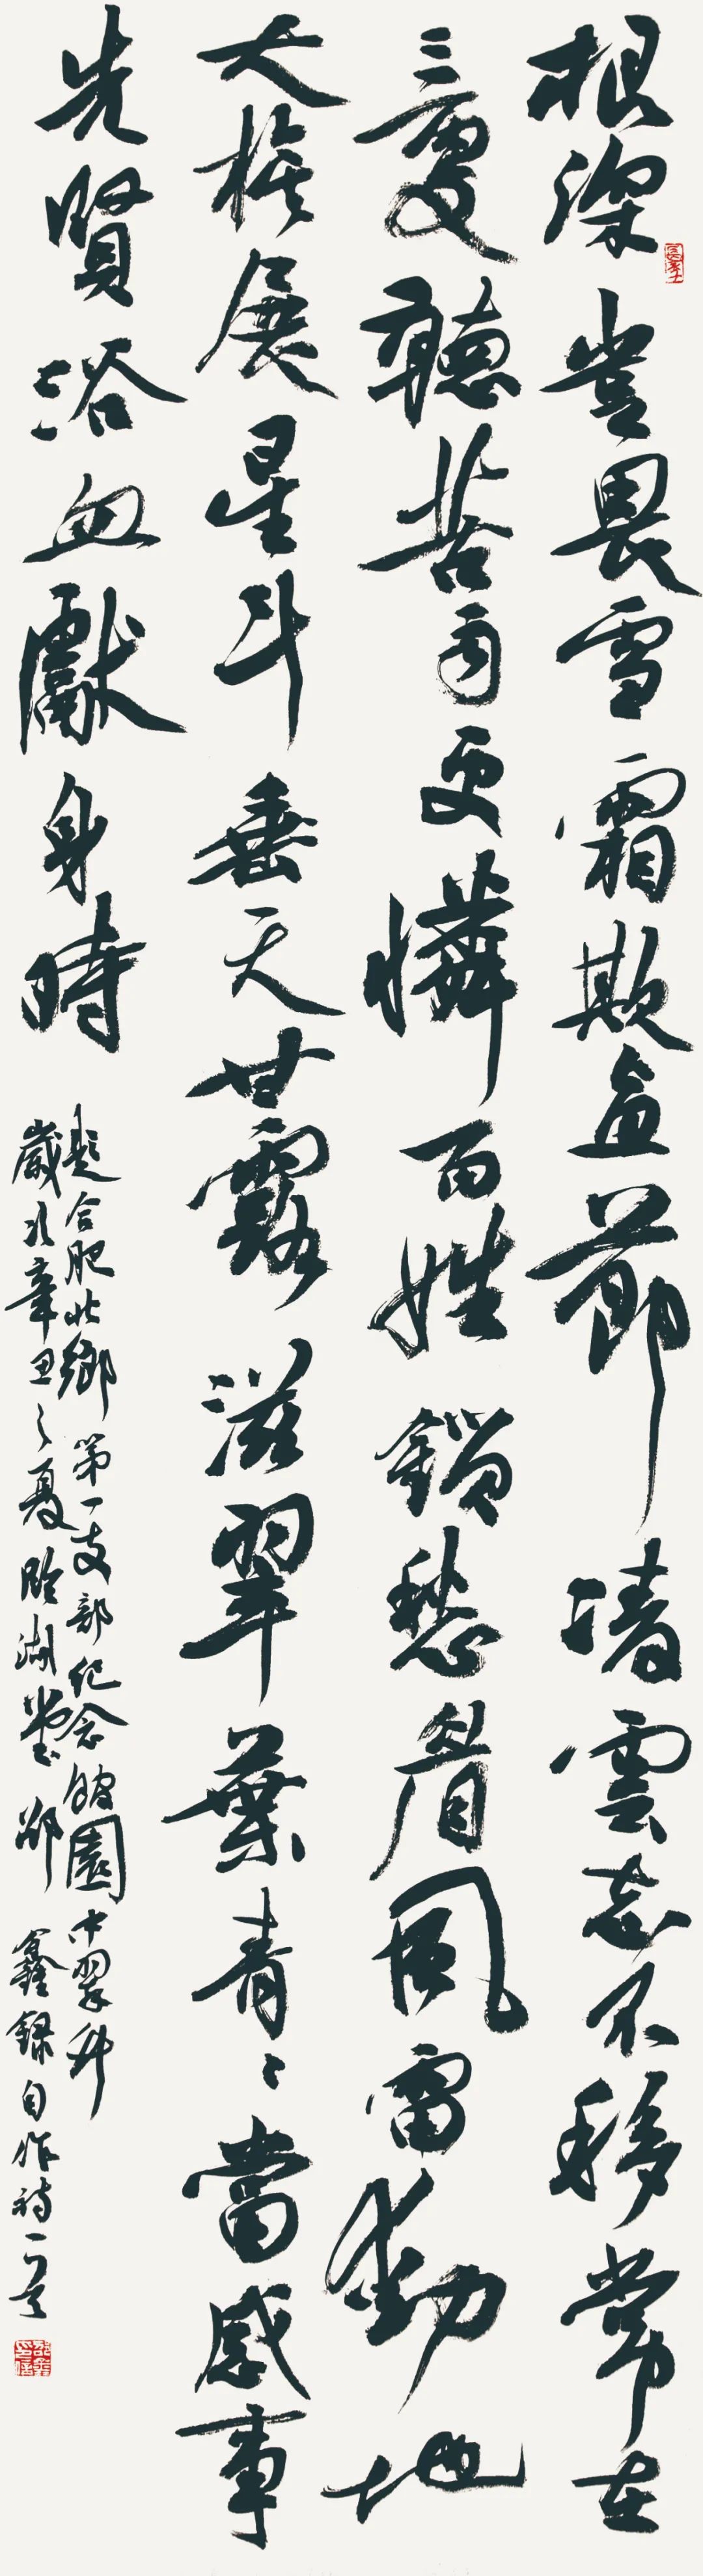 根深豈畏雪霜欺直節凌雲志不移常在
三更聽苦雨更憐百姓鎖愁眉風雷動地
大旗展星斗垂天甘露滋翠葉青〻當感事
先賢浴血獻身時
題合肥北鄉第一支部紀念館園中翠竹
歲次辛丑之夏臨湖堂鑫錄自作詩一首